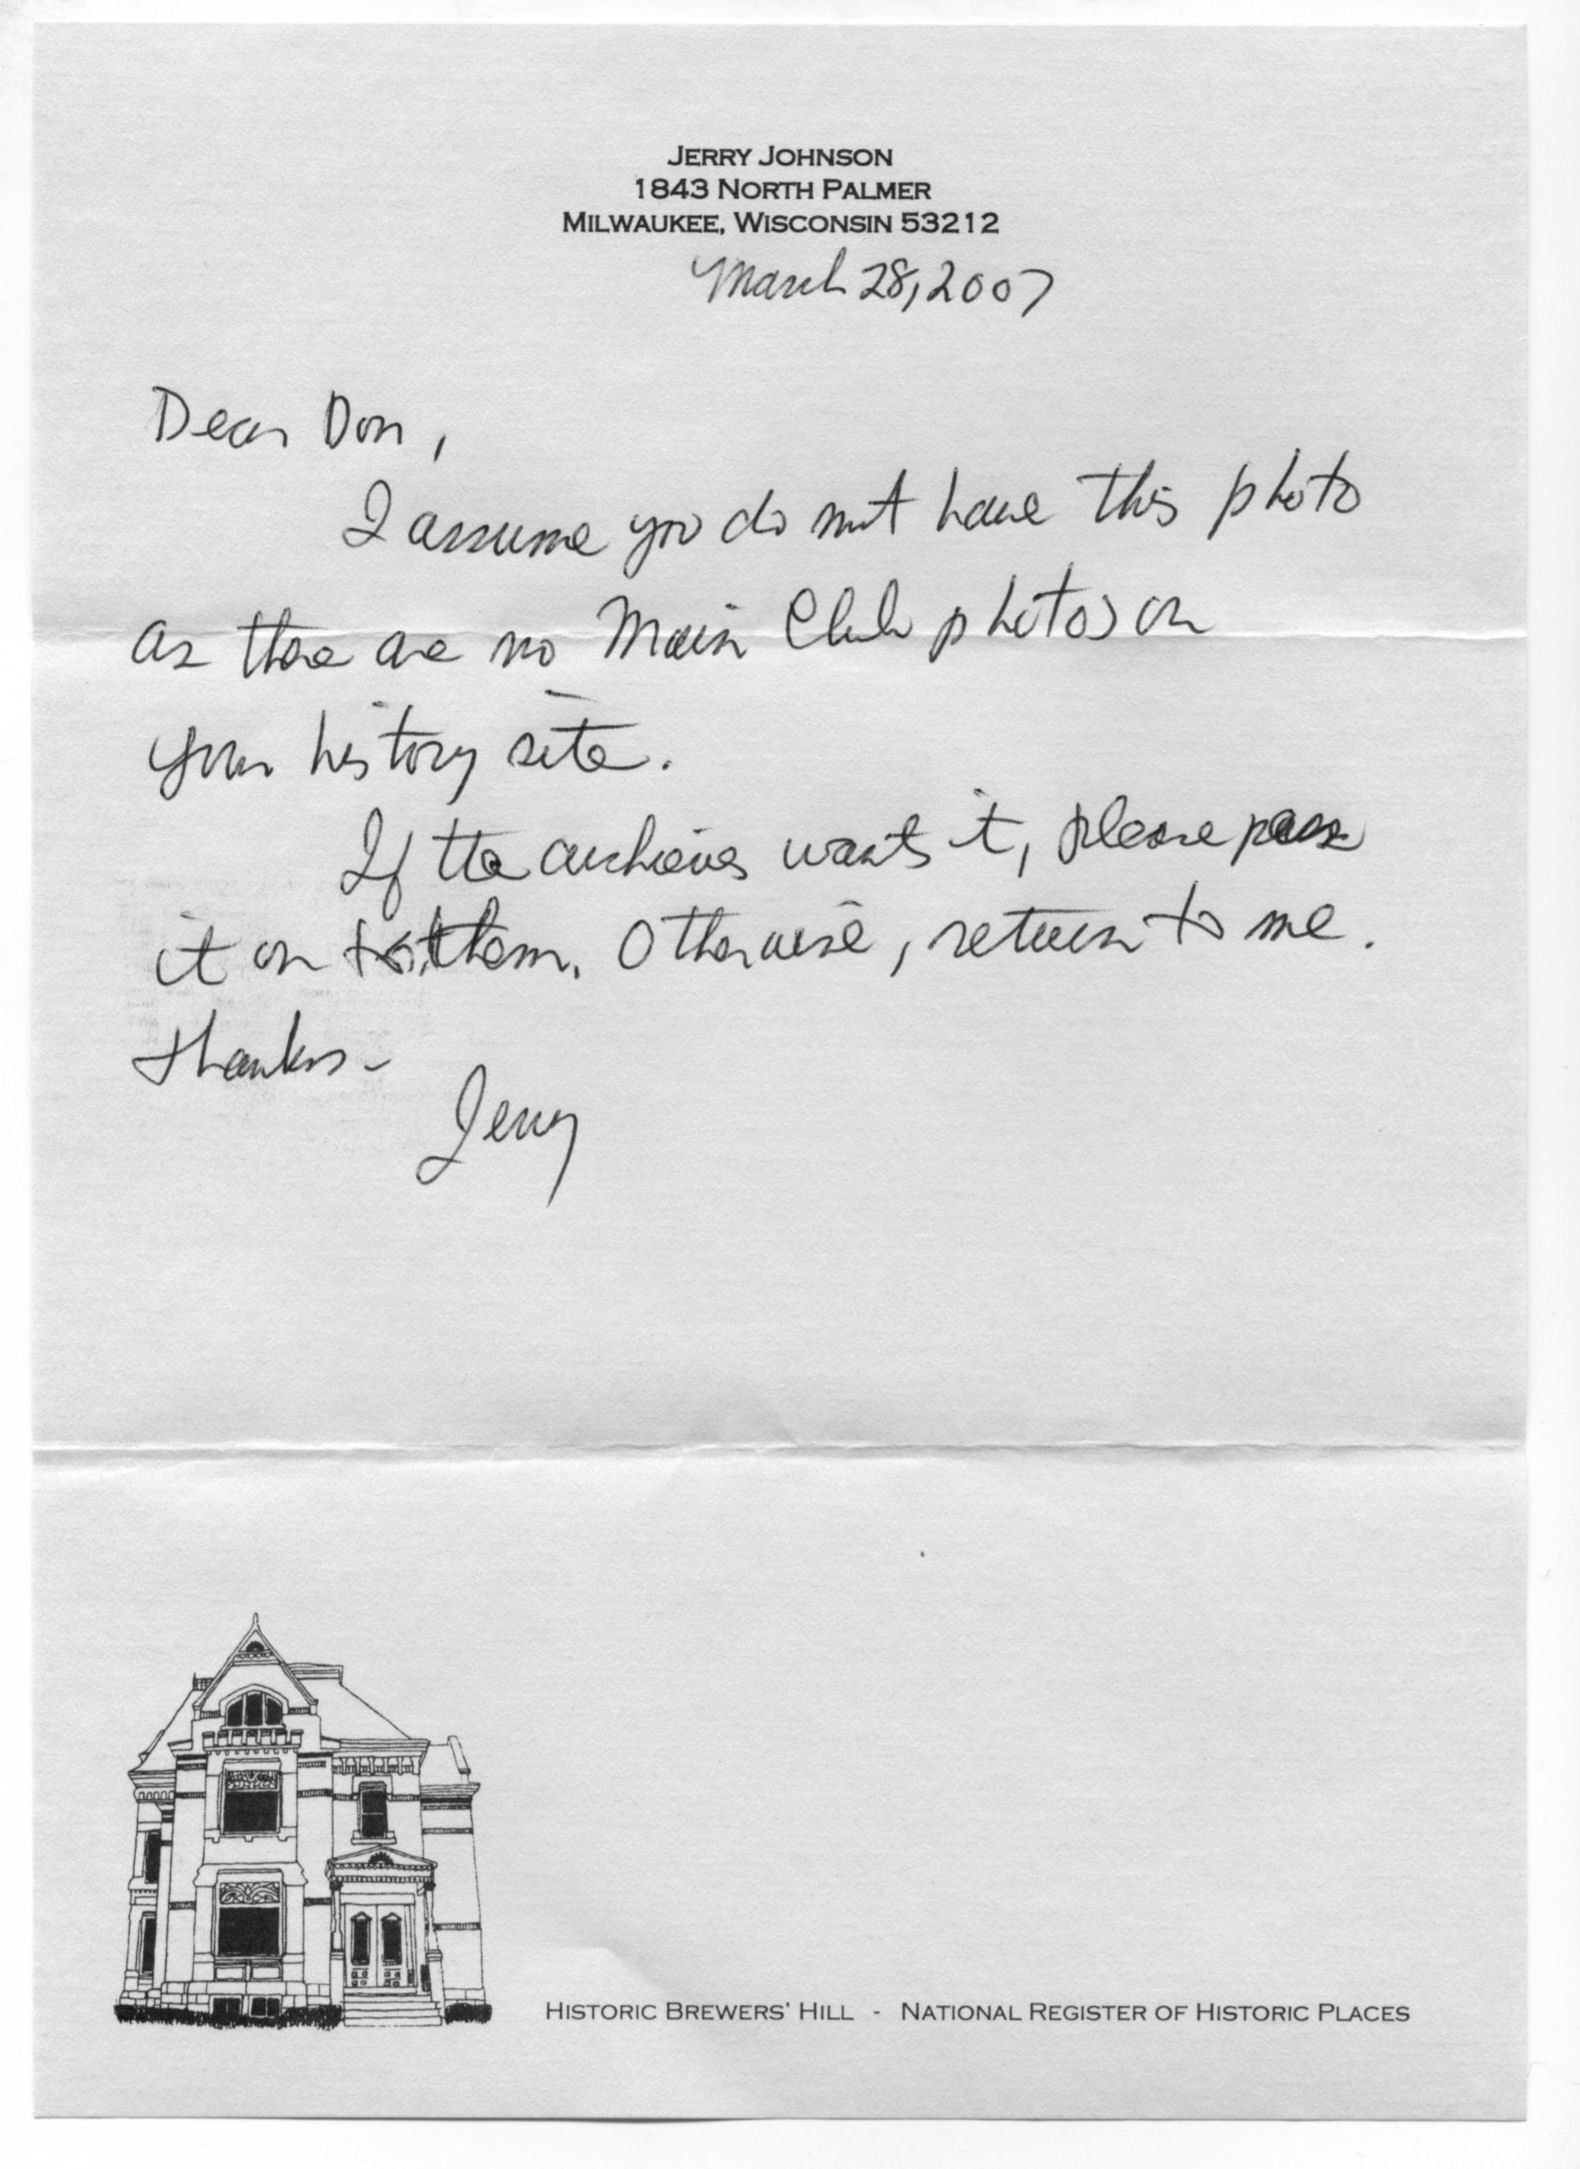 JERRY JOHNSON
1843 NORTH PALMER
MILWAUKEE, WISCONSIN 53212
March 28, 2007
Dear Don,
I assume you do not have this photo
as there are no Main Club photos on
your history site.
If the archives wants it, please pass
it on to them. Otherwise, return to me.
Thanks -
Jerry
HISTORIC BREWERS' HILL - NATIONAL REGISTER OF HISTORIC PLACES